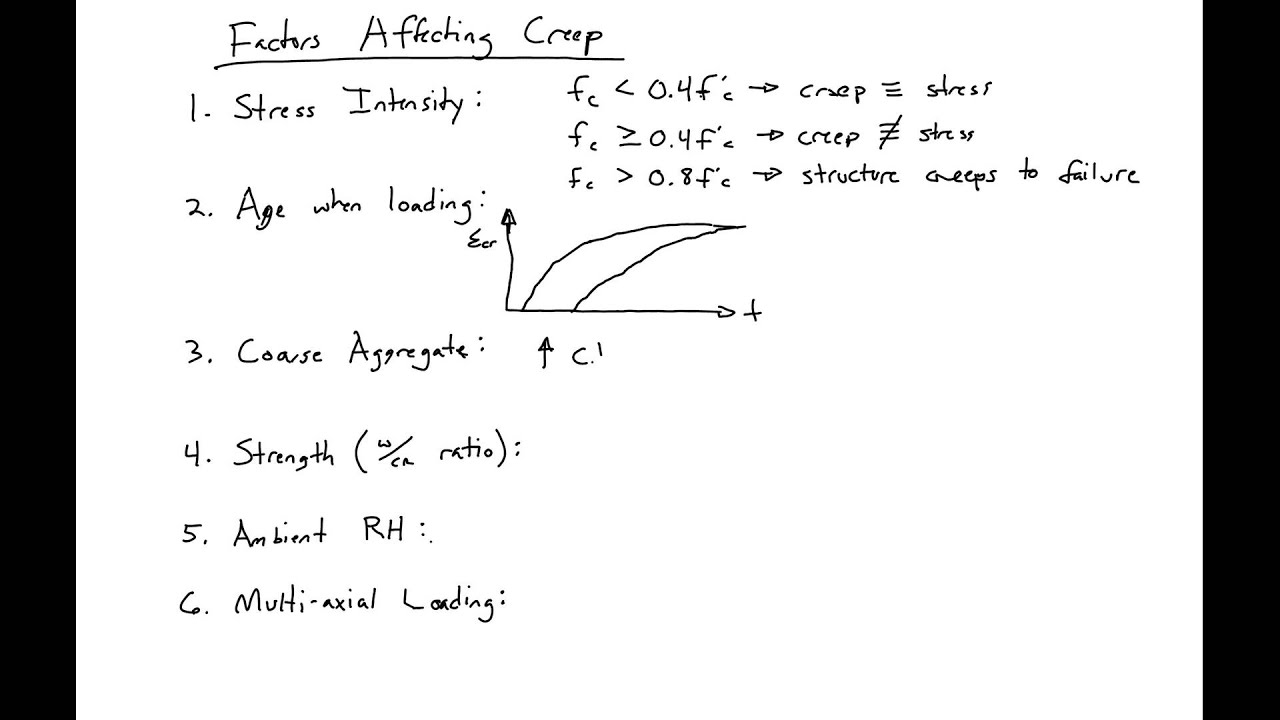 Factors Affecting Creep
1. Stress Intensity: fc < 0.4f'c → creep ≡ stress
fc ≥ 0.4f'c → creep ≢ stress
fc > 0.8f'c → structure creeps to failure
2. Age when loading:
εcr
t
3. Coarse Aggregate: ↑ C.
4. Strength (w/cm ratio):
5. Ambient RH:
6. Multi-axial Loading: